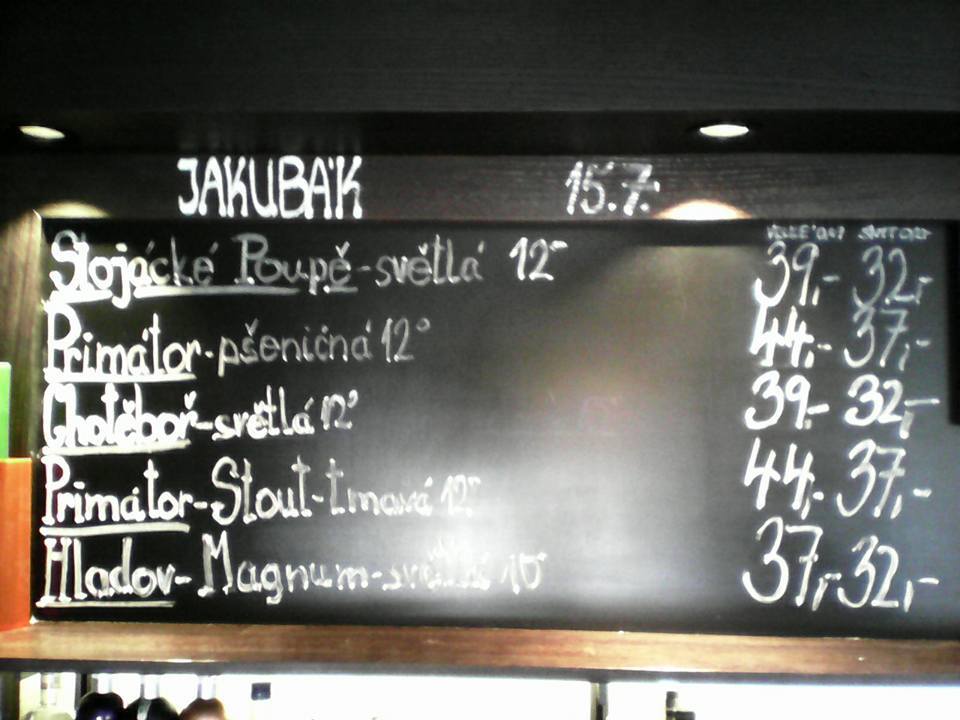 JAKUBÁK 15.7.
Slojácké Poupě-světlá 12° 39,- 32,-
Primátor-pšeničná 12° 44,- 37,-
Chotěboř-světlá 12° 39,- 32,-
Primátor-Stout-tmavá 12° 44,- 37,-
Hladov-Magnum-světlá 10° 37,- 32,-